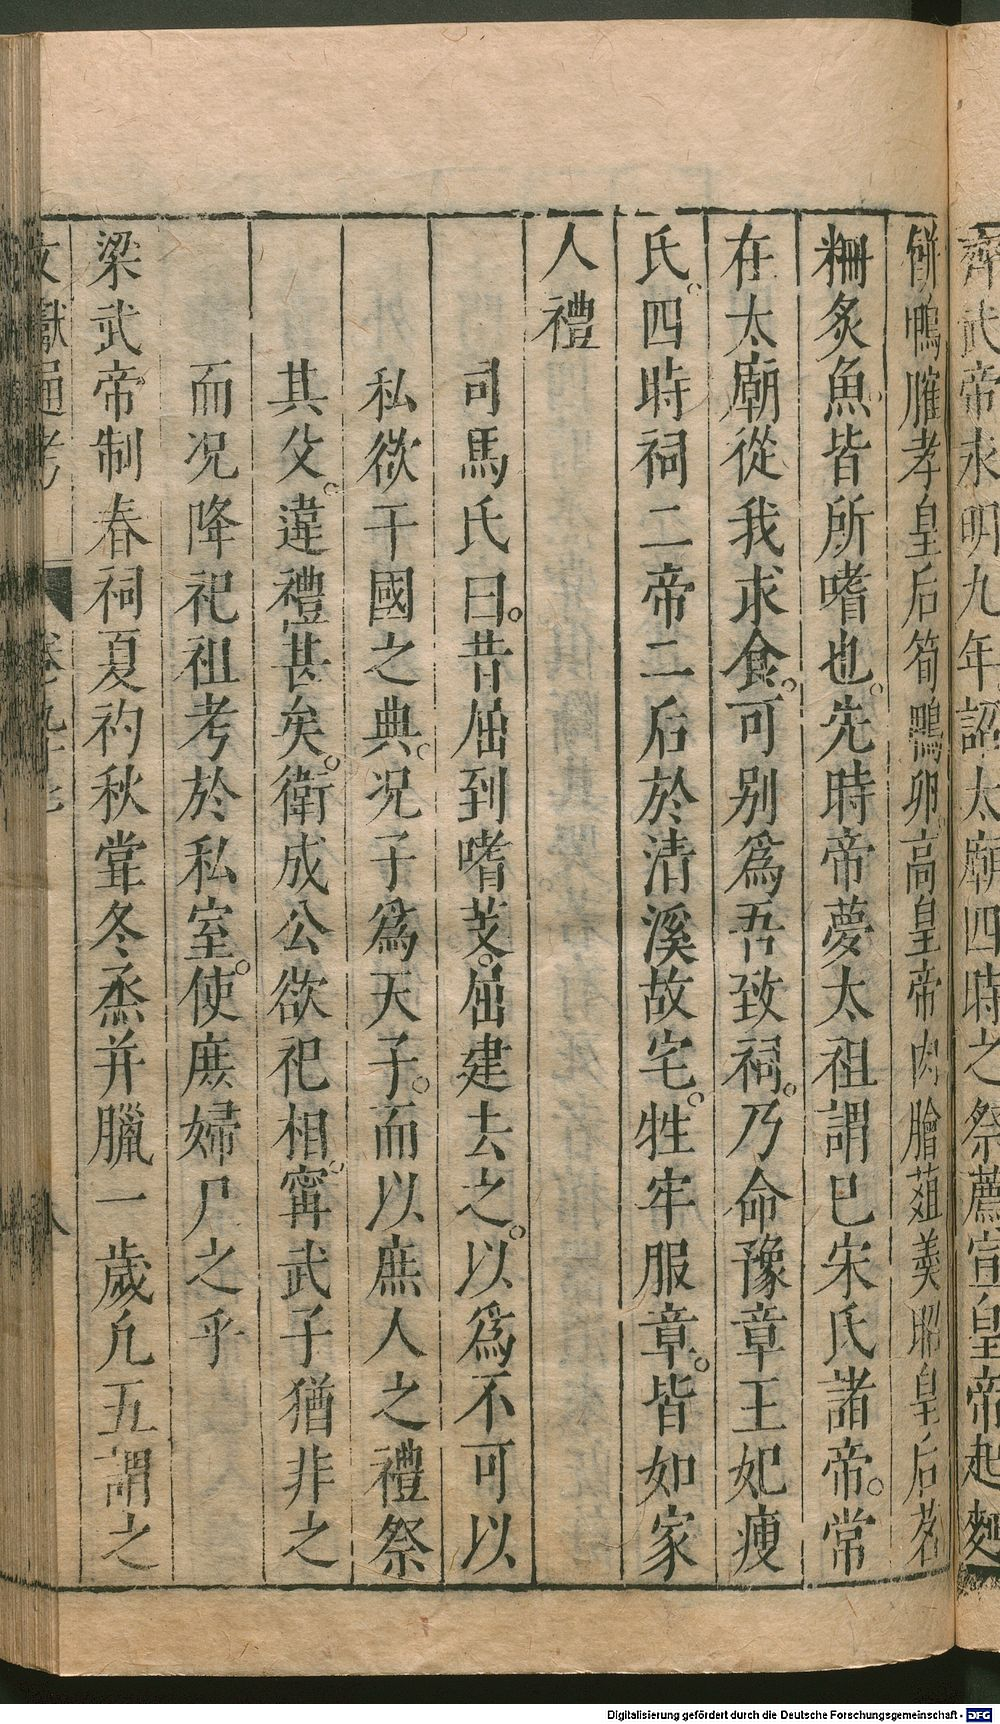 齊武帝永明九年詔太廟四時之祭薦宣皇帝起麵
餅鴨臛孝皇后筍鴨卵高皇帝肉膾葅羹昭皇后茗
粣炙魚皆所嗜也。先時帝夢太祖謂已宋氏諸帝。常
在太廟從我求食。可别爲吾致祠。乃命豫章王妃瘦
氏。四時祠二帝二后於清溪故宅。牲牢服章。皆如家
人禮
司馬氏曰。昔屈到嗜芰。屈建去之。以爲不可以
私欲干國之典。况子爲天子。而以庶人之禮祭
其父。違禮甚矣。衛成公欲祀相。甯武子猶非之
而况降祀祖考於私室。使庶婦尸之乎
梁武帝制春祠夏礿秋甞冬烝并臘一歲凢五謂之
文獻通考 卷之九十七 八
Digitalisierung gefördert durch die Deutsche Forschungsgemeinschaft - DFG